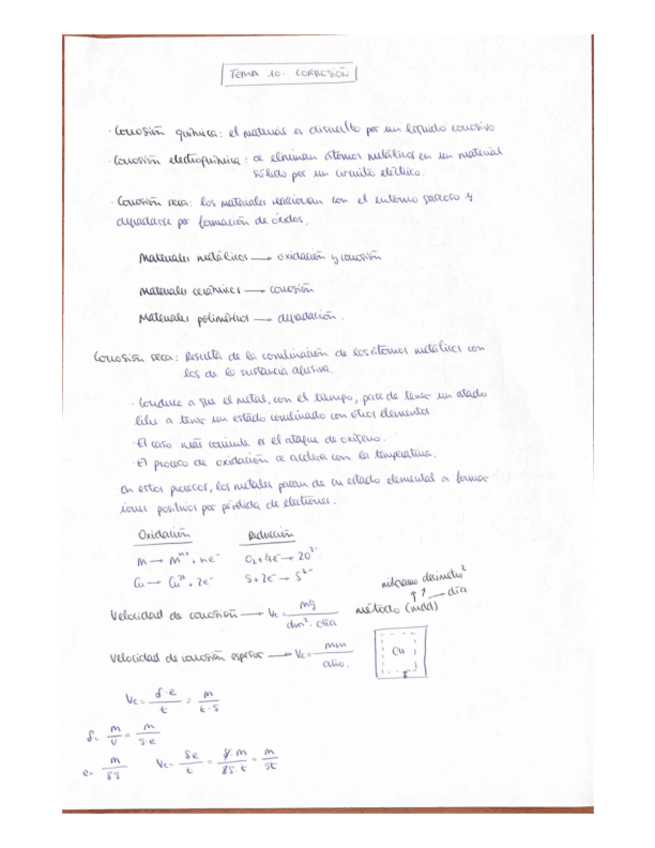 TEMA 10: CORROSIÓN
· Corrosión química: el material es disuelto por un líquido corrosivo
· Corrosión electroquímica: se eliminan átomos metálicos en un material
sólido por un circuito eléctrico.
· Corrosión seca: los materiales reaccionan con el entorno gaseoso y
degradarse por formación de óxidos.
Materiales metálicos → oxidación y corrosión
Materiales cerámicos → corrosión
Materiales poliméricos → degradación.
Corrosión seca: Resulta de la combinación de los átomos metálicos con
los de la sustancia agresiva.
· Conduce a que el metal, con el tiempo, pase de tener un estado
libre a tener un estado combinado con otros elementos
· El caso más corriente es el ataque de oxígeno.
· El proceso de oxidación se acelera con la temperatura.
En estos procesos, los metales pasan de su estado elemental a formar
iones positivos por pérdida de electrones.
Oxidación Reducción
M → Mⁿ⁺ + ne⁻ O₂ + 4e⁻ → 2O²⁻
Cu → Cu²⁺ + 2e⁻ S + 2e⁻ → S²⁻
miligramo decímetro²
↑ ↑ → día
Velocidad de corrosión → Vc = mg / dm² · día método (mdd)
Velocidad de corrosión espesor → Vc = mm / año.
Cu
Vc = δ·e / t = m / t·s
δ = m / v = m / s·e
e = m / δs Vc = δe / t = δ·m / δs·t = m / st